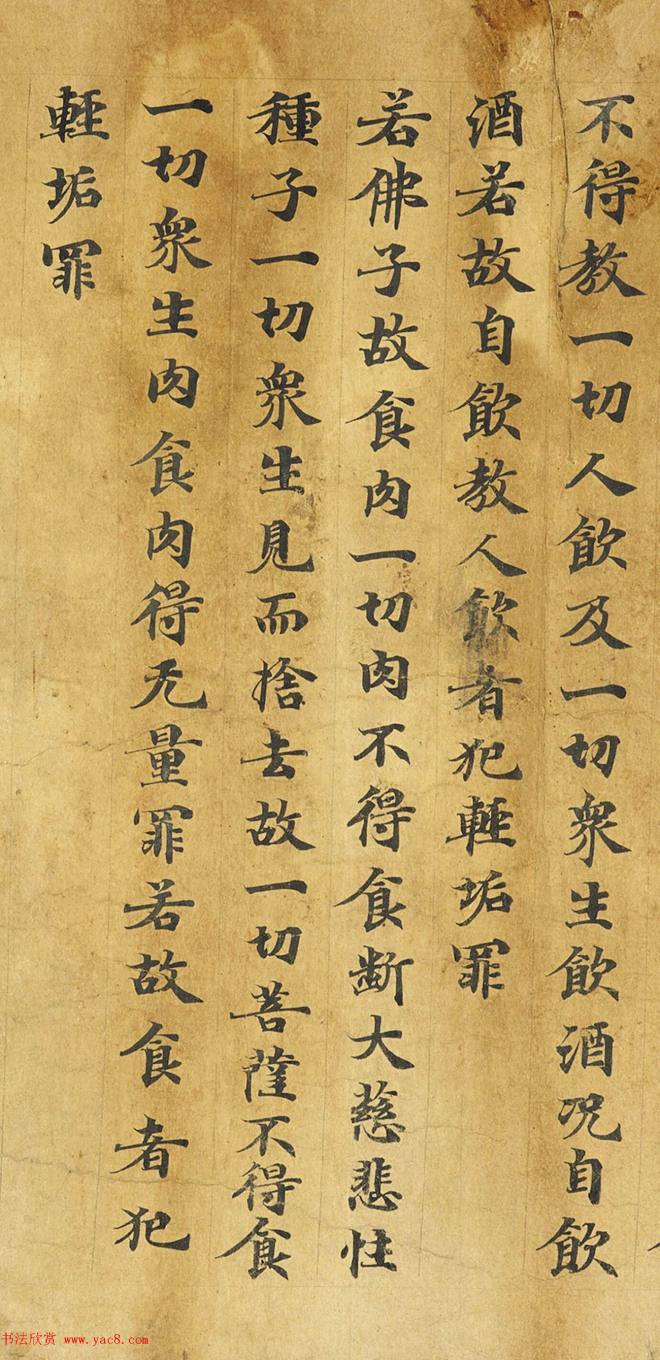 不得教一切人飲及一切衆生飲酒况自飲
酒若故自飲教人飲者犯輕垢罪
若佛子故食肉一切肉不得食断大慈悲性
種子一切衆生見而捨去故一切菩薩不得食
一切衆生肉食肉得无量罪若故食者犯
輕垢罪
书法欣赏 www.yac8.com